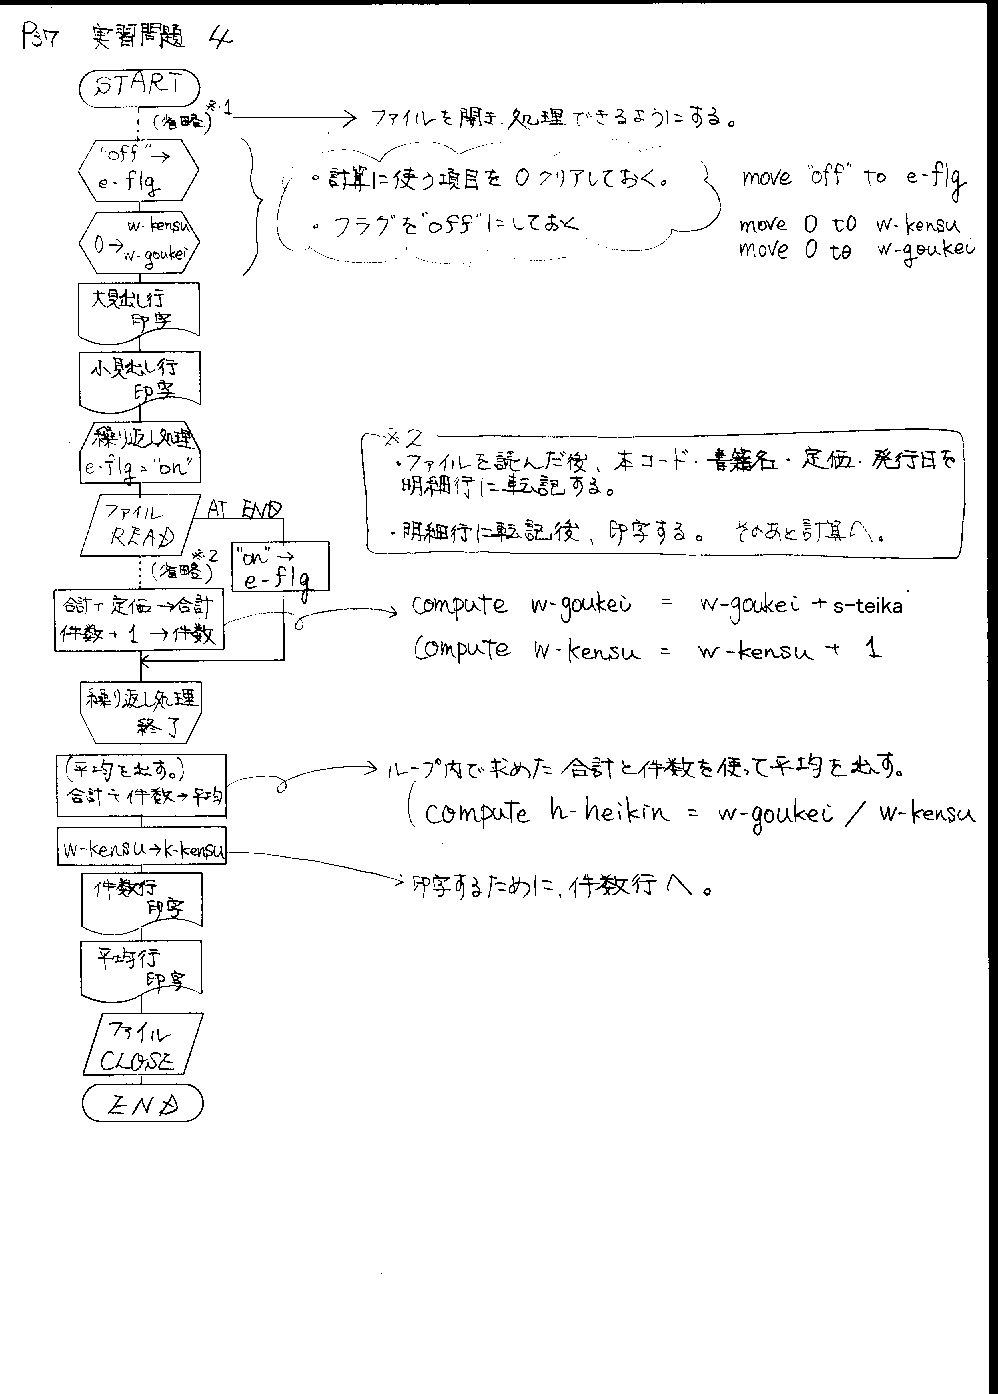 P37 実習問題 4
START
(省略)※1
ファイルを開き、処理できるようにする。
"off"→
e-flg
・計算に使う項目を0クリアしておく。
・フラグを"off"にしておく
move "off" to e-flg
0→ w-kensu
w-goukei
move 0 to w-kensu
move 0 to w-goukei
大見出し行
印字
小見出し行
印字
繰り返し処理
e-flg="on"
※2
・ファイルを読んだ後、本コード・書籍名・定価・発行日を
明細行に転記する。
・明細行に転記後、印字する。 そのあと計算へ。
ファイル
READ
AT END
"on"→
e-flg
(省略)※2
合計+定価→合計
件数+1→件数
compute w-goukei = w-goukei + s-teika
compute w-kensu = w-kensu + 1
繰り返し処理
終了
(平均を出す。)
合計÷件数→平均
ループ内で求めた合計と件数を使って平均を出す。
compute h-heikin = w-goukei / w-kensu
w-kensu→k-kensu
印字するために、件数行へ。
件数行
印字
平均行
印字
ファイル
CLOSE
END